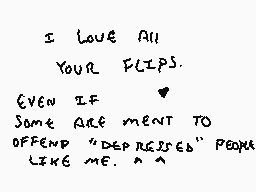 I LOVE All
YOUR FLIPS.
EVEN IF ♥
SOME ARE MENT TO
OFFEND "DEPRESSED" PEOPLE
LIKE ME. ^ ^